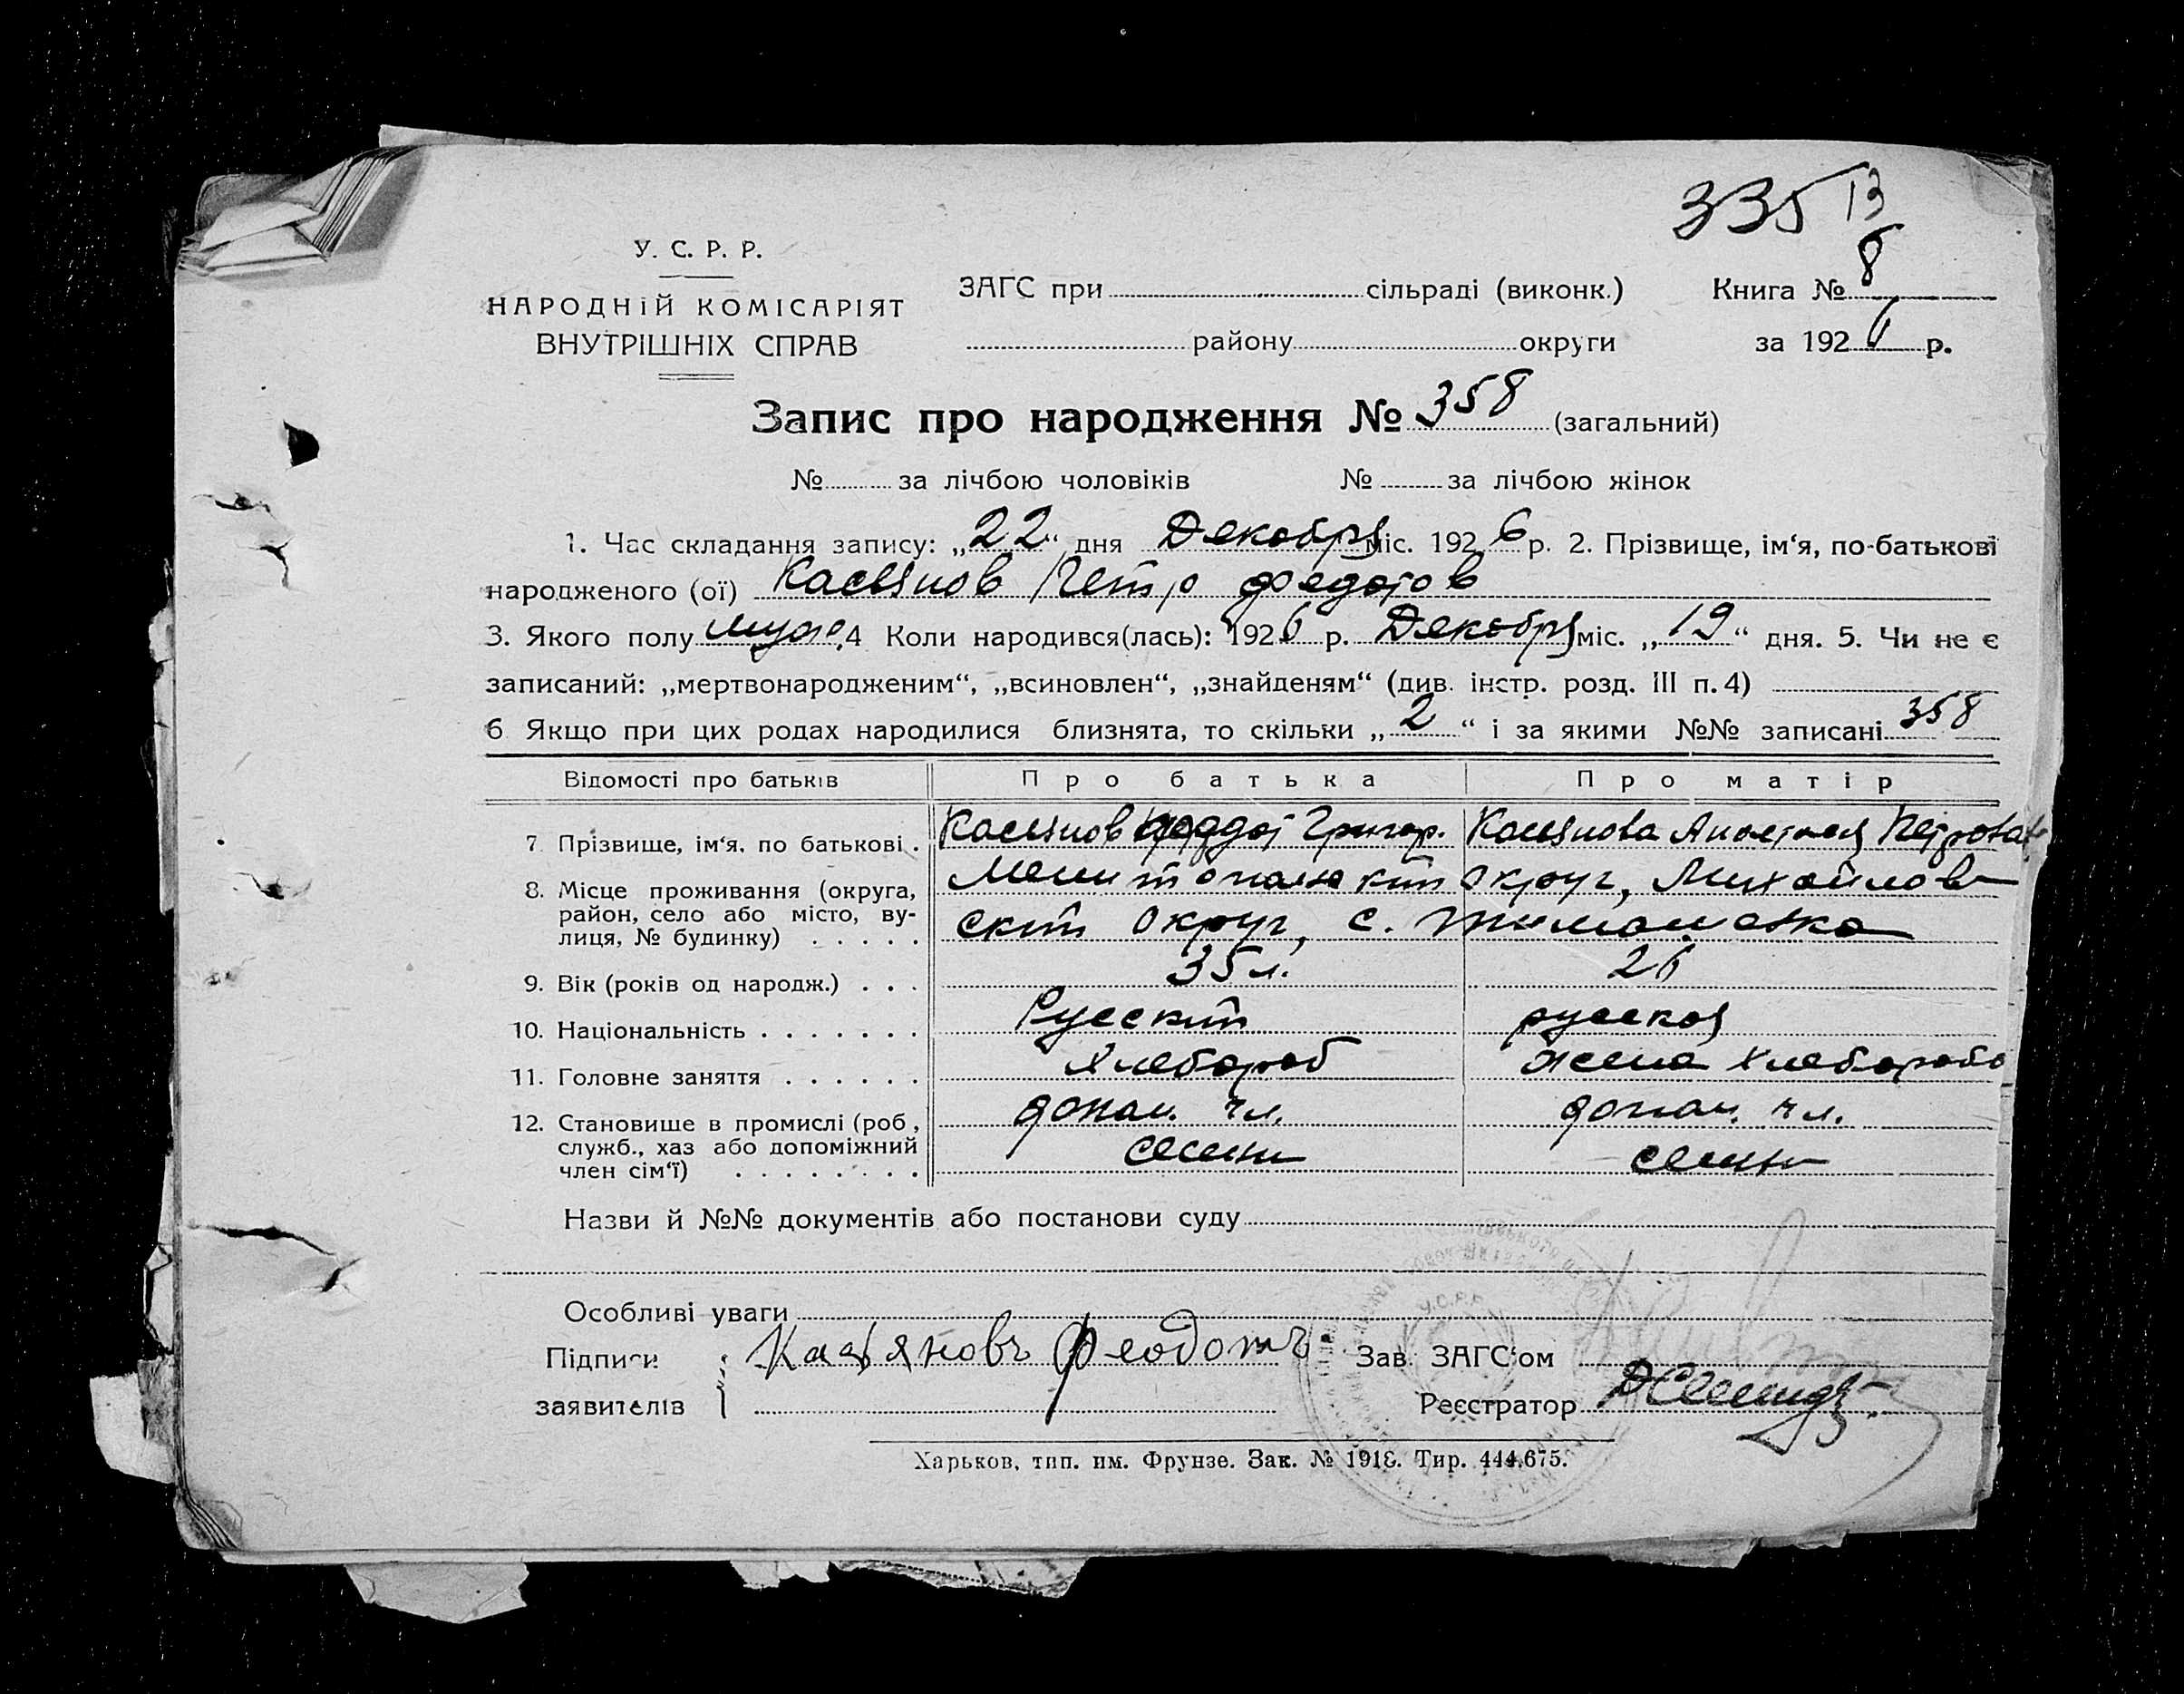 335 13
У. С. Р. Р.
НАРОДНІЙ КОМІСАРІЯТ
ВНУТРІШНІХ СПРАВ
ЗАГС при сільраді (виконк.)
району округи
Книга № 8
за 1926 р.
Запис про народження № 358 (загальний)
№ за лічбою чоловіків № за лічбою жінок
1. Час складання запису: „22“ дня Декабря міс. 1926 р. 2. Прізвище, ім‘я, по-батькові
народженого (ої) Касьянов Петр Федотов
3. Якого полу муж. 4 Коли народився(лась): 1926 р. Декабря міс. „19“ дня. 5. Чи не є
записаний: „мертвонародженим“, „всиновлен“, „знайденям“ (див. інстр. розд. III п. 4)
6 Якщо при цих родах народилися близнята, то скільки „2“ і за якими №№ записані 358
Відомості про батьків Про батька Про матір
7. Прізвище, ім‘я, по батькові . Касьянов Федот Григор. Касьянова Анастасия Петровна
8. Місце проживання (округа, Мелитопольский Округ, Михайлов-
район, село або місто, ву-
лиця, № будинку) . . . . . ский Округ, с. Тимошовка
9. Вік (років од народж.) . . . 35 л. 26
10. Національність . . . . . . . Русский русская
11. Головне заняття . . . . . . Хлебороб жена хлебороба
12. Становище в промислі (роб., допом. чл. допом. чл.
служб., хаз або допоміжний
член сім‘ї) . . . . . . . . семьи семьи
Назви й №№ документів або постанови суду
Особливі уваги
Підписи
заявителів
Касьяновъ Феодотъ
Зав. ЗАГС‘ом
Реєстратор
У.С.Р.Р.
Харьков, тип. им. Фрунзе. Зак. № 1918. Тир. 444.675.